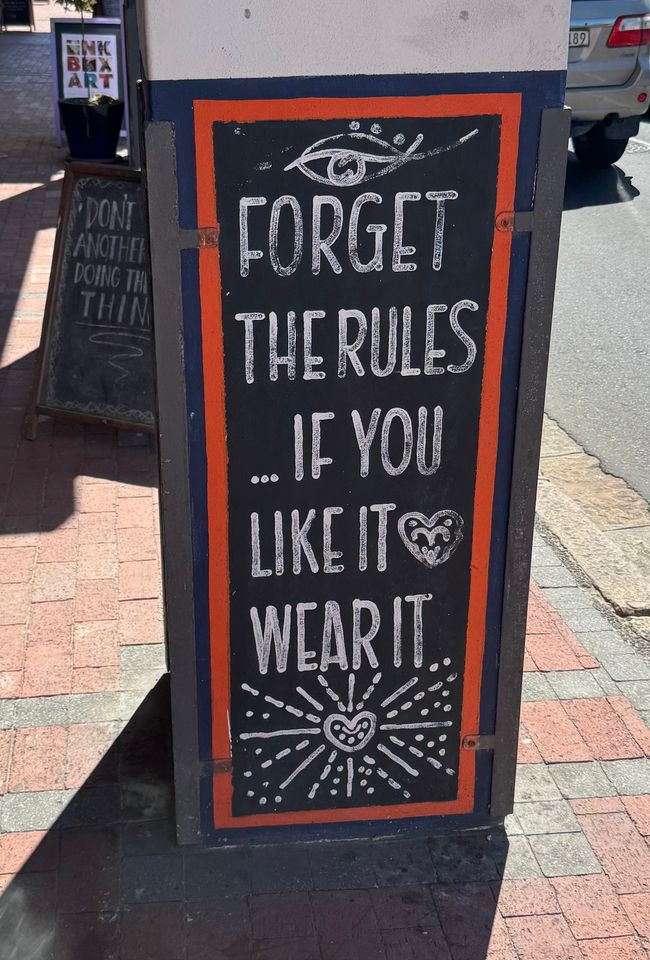 FORGET
THE RULES
... IF YOU
LIKE IT
WEAR IT..
INK
BOX
ART
DON'T
DOING
89